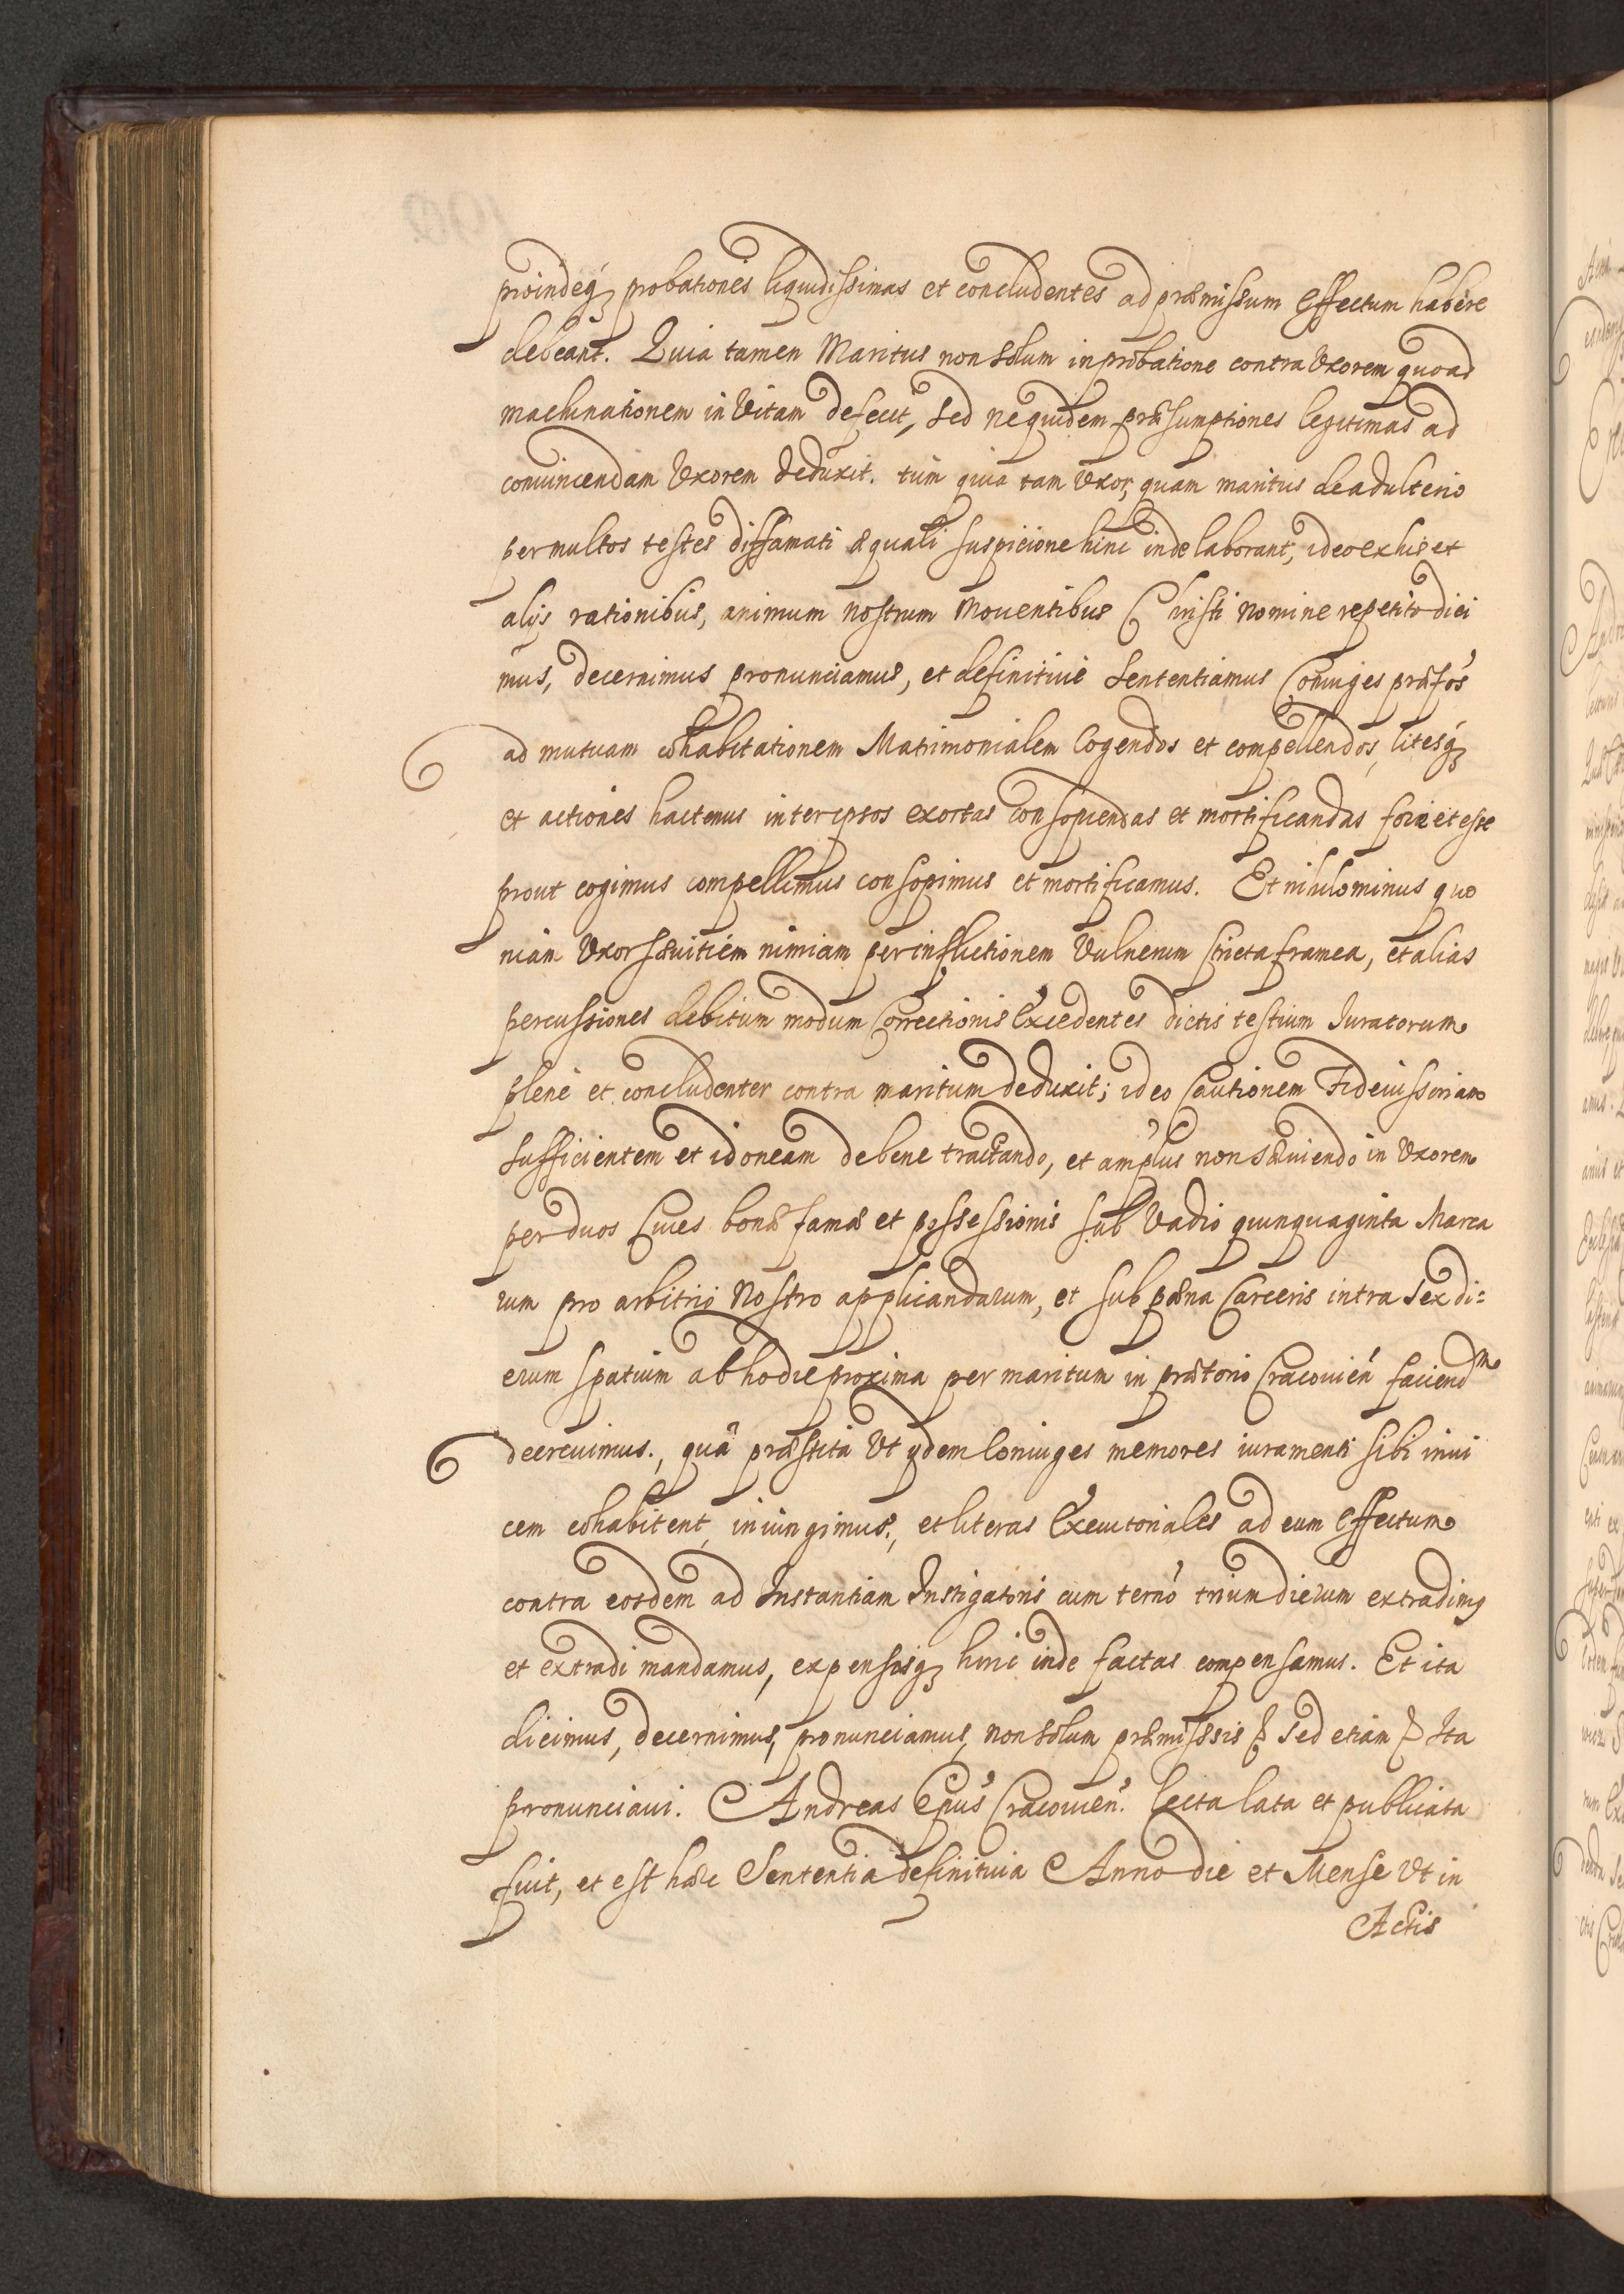 proindeq́ꝫ probationes liquidissimas et concludentes ad præmissum effectum habere
debeant. Quia tamen Maritus non solum in probatione contra Vxorem quoad
machinationem in Vitam defecit, sed ne quidem præsumptiones legitimas ad
conuincendam Vxorem deduxit. tum quia tam Vxor, quam maritus de adulterio
per multos testes diffamati æquali suspicione hinc inde laborant, ideo ex his et
alijs rationibus, animum nostrum mouentibus Christi nomine repetito dici
mus, decernimus pronunciamus, et definitiue sententiamus Coniuges præfós
ad mutuam cohabitationem Matrimonialem Cogendos et compellendos, litesq́ꝫ
et actiones hactenus inter ipsos exortas consopiendas et mortificandas fore et esse
prout cogimus compellimus consopimus et mortificamus. Et nihilominus quo
niam Vxor sæuitiem nimiam per inflictionem Vulnerum stricta framea, et alias
percussiones debitum modum Correctionis Excedentes dictis testium Iuratorum
plene et concludenter contra maritum deduxit; ideo Cautionem Fideiussoriam
sufficientem et idoneam de bene tractando, et amplius non sæuiendo in Vxorem
per duos Ciues bonæ famæ et possessionis sub Vadio quinquaginta Marca
rum pro arbitrio Nostro applicandarum, et sub pæna Carceris intra sex di=
erum spatium ab hodie proxima per maritum in prætorio Cracouień faciendᵐ
decreuimus., quâ præstita Vt ydem Coniuges memores iuramenti sibi inui
cem cohabitent, iniungimus., et literas Executoriales ad eum effectum
contra eosdem ad Instantiam Instigatoris cum termó trium dierum extradimꝰ
et extradi mandamus, expensasqꝫ hinc inde factas compensamus. Et ita
dicimus, decernimus, pronunciamus, non solum præmissis &c sed etiam &c Ita
pronunciaui. Andreas Epús Cracouień. Lecta lata et publicata
fuit, et est hæc Sententia definitiua Anno die et Mense Vt in
Actis